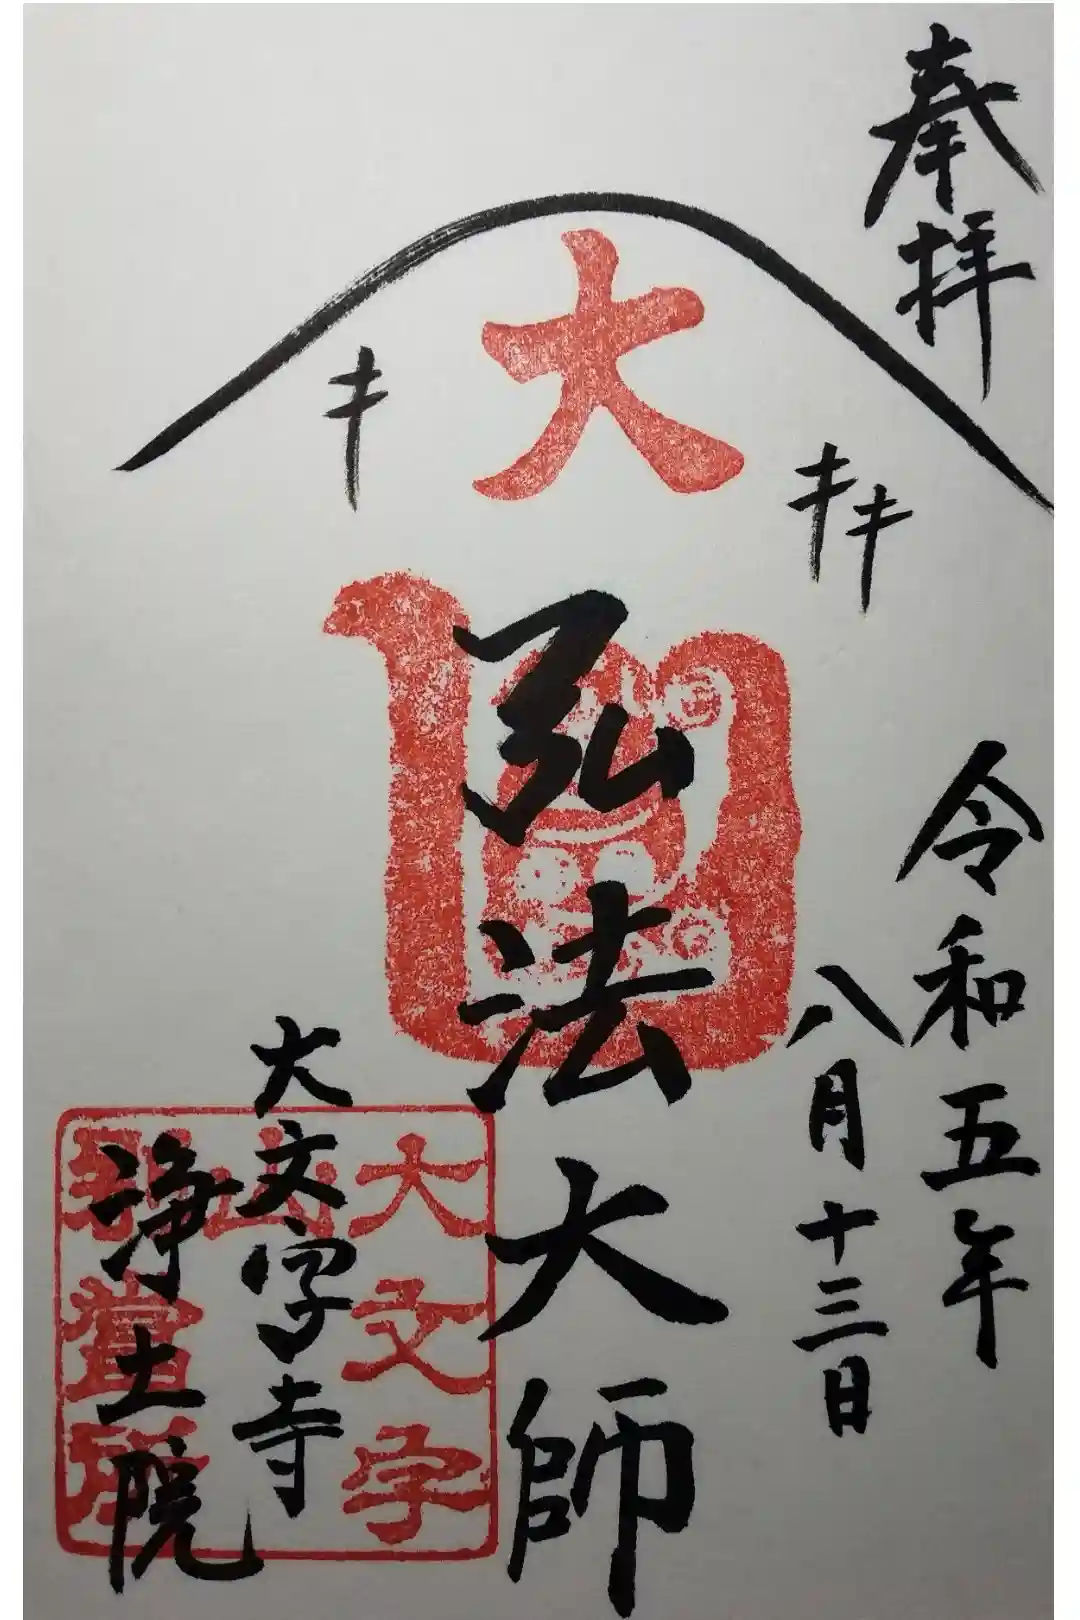 奉拝
令和五年
八月十三日
大
弘法大師
大文字
山
大文字寺
浄土院